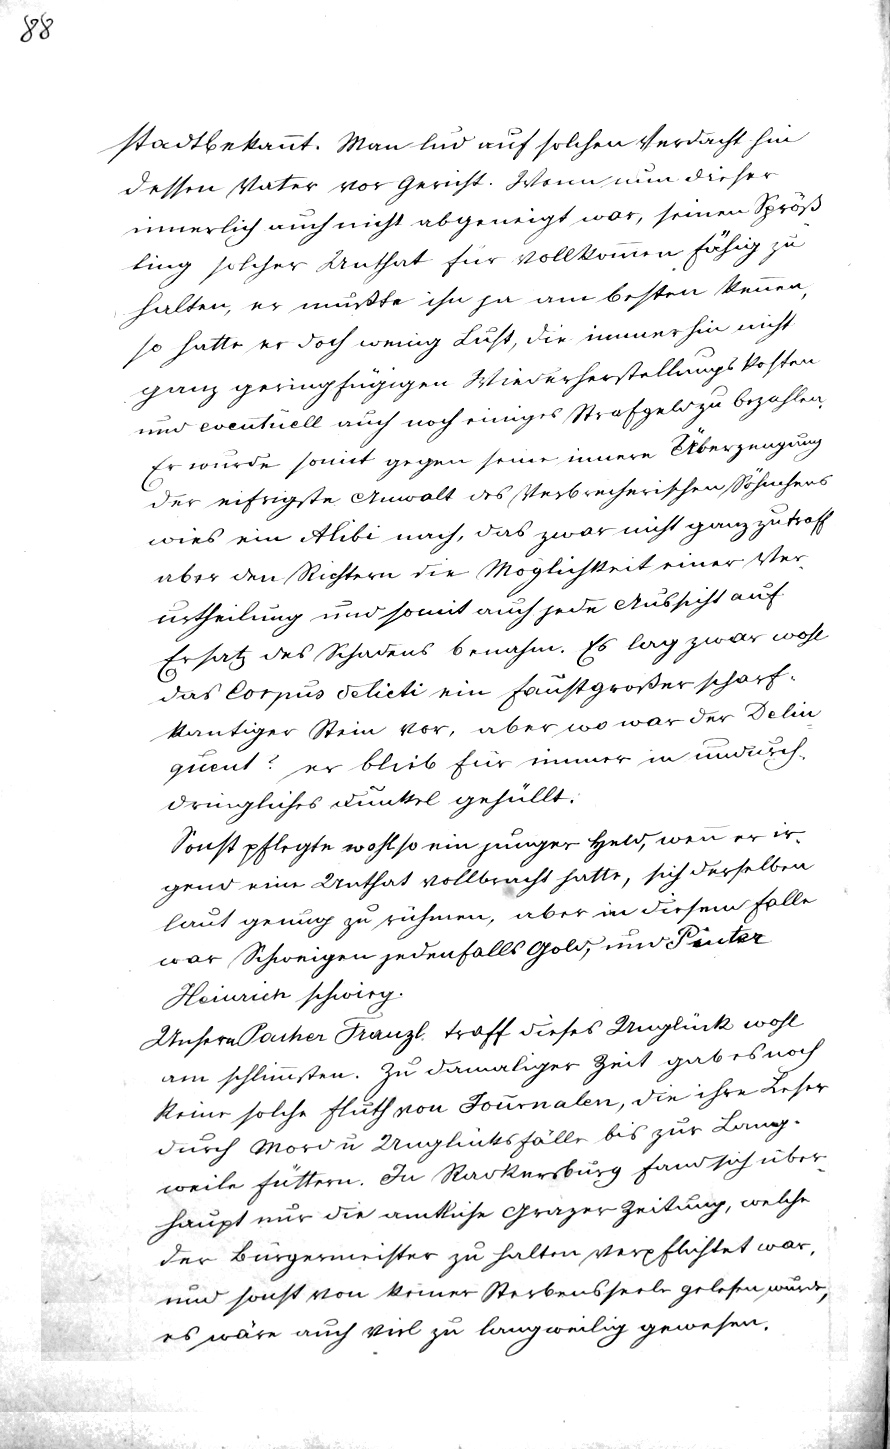 88
stadtbekannt. Man lud auf solchen Verdacht hin
dessen Vater vor Gericht. Wenn nun dieser
innerlich auch nicht abgeneigt war, seinen Spröß
ling solcher Unthat für vollkommen fähig zu
halten, er mußte ihn ja am besten kennen,
so hatte er doch wenig Lust, die immerhin nicht
ganz geringfügigen Wiederherstellungskosten
und eventuell auch noch einiges Strafgeld zu bezahlen.
Er wurde somit gegen seine innere Überzeugung
der eifrigste Anwalt des Verbrecherischen Söhnchens
wies ein Alibi nach, das zwar nicht ganz zutraff
aber den Richtern die Möglichkeit einer Ver-
urtheilung und somit auch jede Aussicht auf
Ersatz des Schadens benahm. Es lag zwar wohl
das Corpus delicti ein faustgroßer scharf-
kantiger Stein vor, aber wo war der Delin
quent? er blieb für immer in undurch-
dringliches Dunkel gehüllt.
Sonst pflegte wohl so ein junger Held, wenn er ir-
gend eine Unthat vollbracht hatte, sich derselben
laut genug zu rühmen, aber in diesem Falle
war Schweigen jedenfalls Gold, und Pinter
Heinrich schwieg.
Unsern Pacher Franzl traff dieses Unglück wohl
am schlimmsten. Zu damaliger Zeit gab es noch
keine solche Fluth von Journalen, die ihre Leser
durch Mord u Unglücksfälle bis zur Lang-
weile füttern. In Radkersburg fand sich über-
haupt nur die amtliche Grazer Zeitung, welche
der Bürgermeister zu halten verpflichtet war,
und sonst von keiner Sterbensseele gelesen wurde,
es wäre auch viel zu langweilig gewesen.